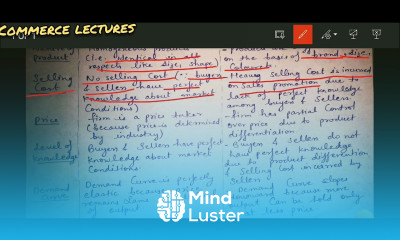 COMMERCE LECTURES
Product
Homogeneous product
(i.e. Identical in all
respects like size, shape)
on the basis of brand, size,
Colour etc.
Selling
Cost
No selling Cost (∵ buyers
& Sellers have perfect
knowledge about market
Conditions)
Means selling Cost is incurred
on Sales promotion due to
lack of perfect knowledge
among buyers & Sellers
Price
-firm is a price taker
(because price is determined
by industry)
-firm has partial Control
over price due to product
differentiation
Level of
knowledge
Buyers & Sellers have perfect
knowledge about market
Conditions.
- Buyers & Sellers do not
have perfect knowledge
due to product differentiation
& Selling Cost incurred by
Sellers
Demand
Curve
Demand Curve is perfectly
elastic because
remains same
of output
Demand Curve slopes
because more
output Can be sold only
less price
Mind
Luster